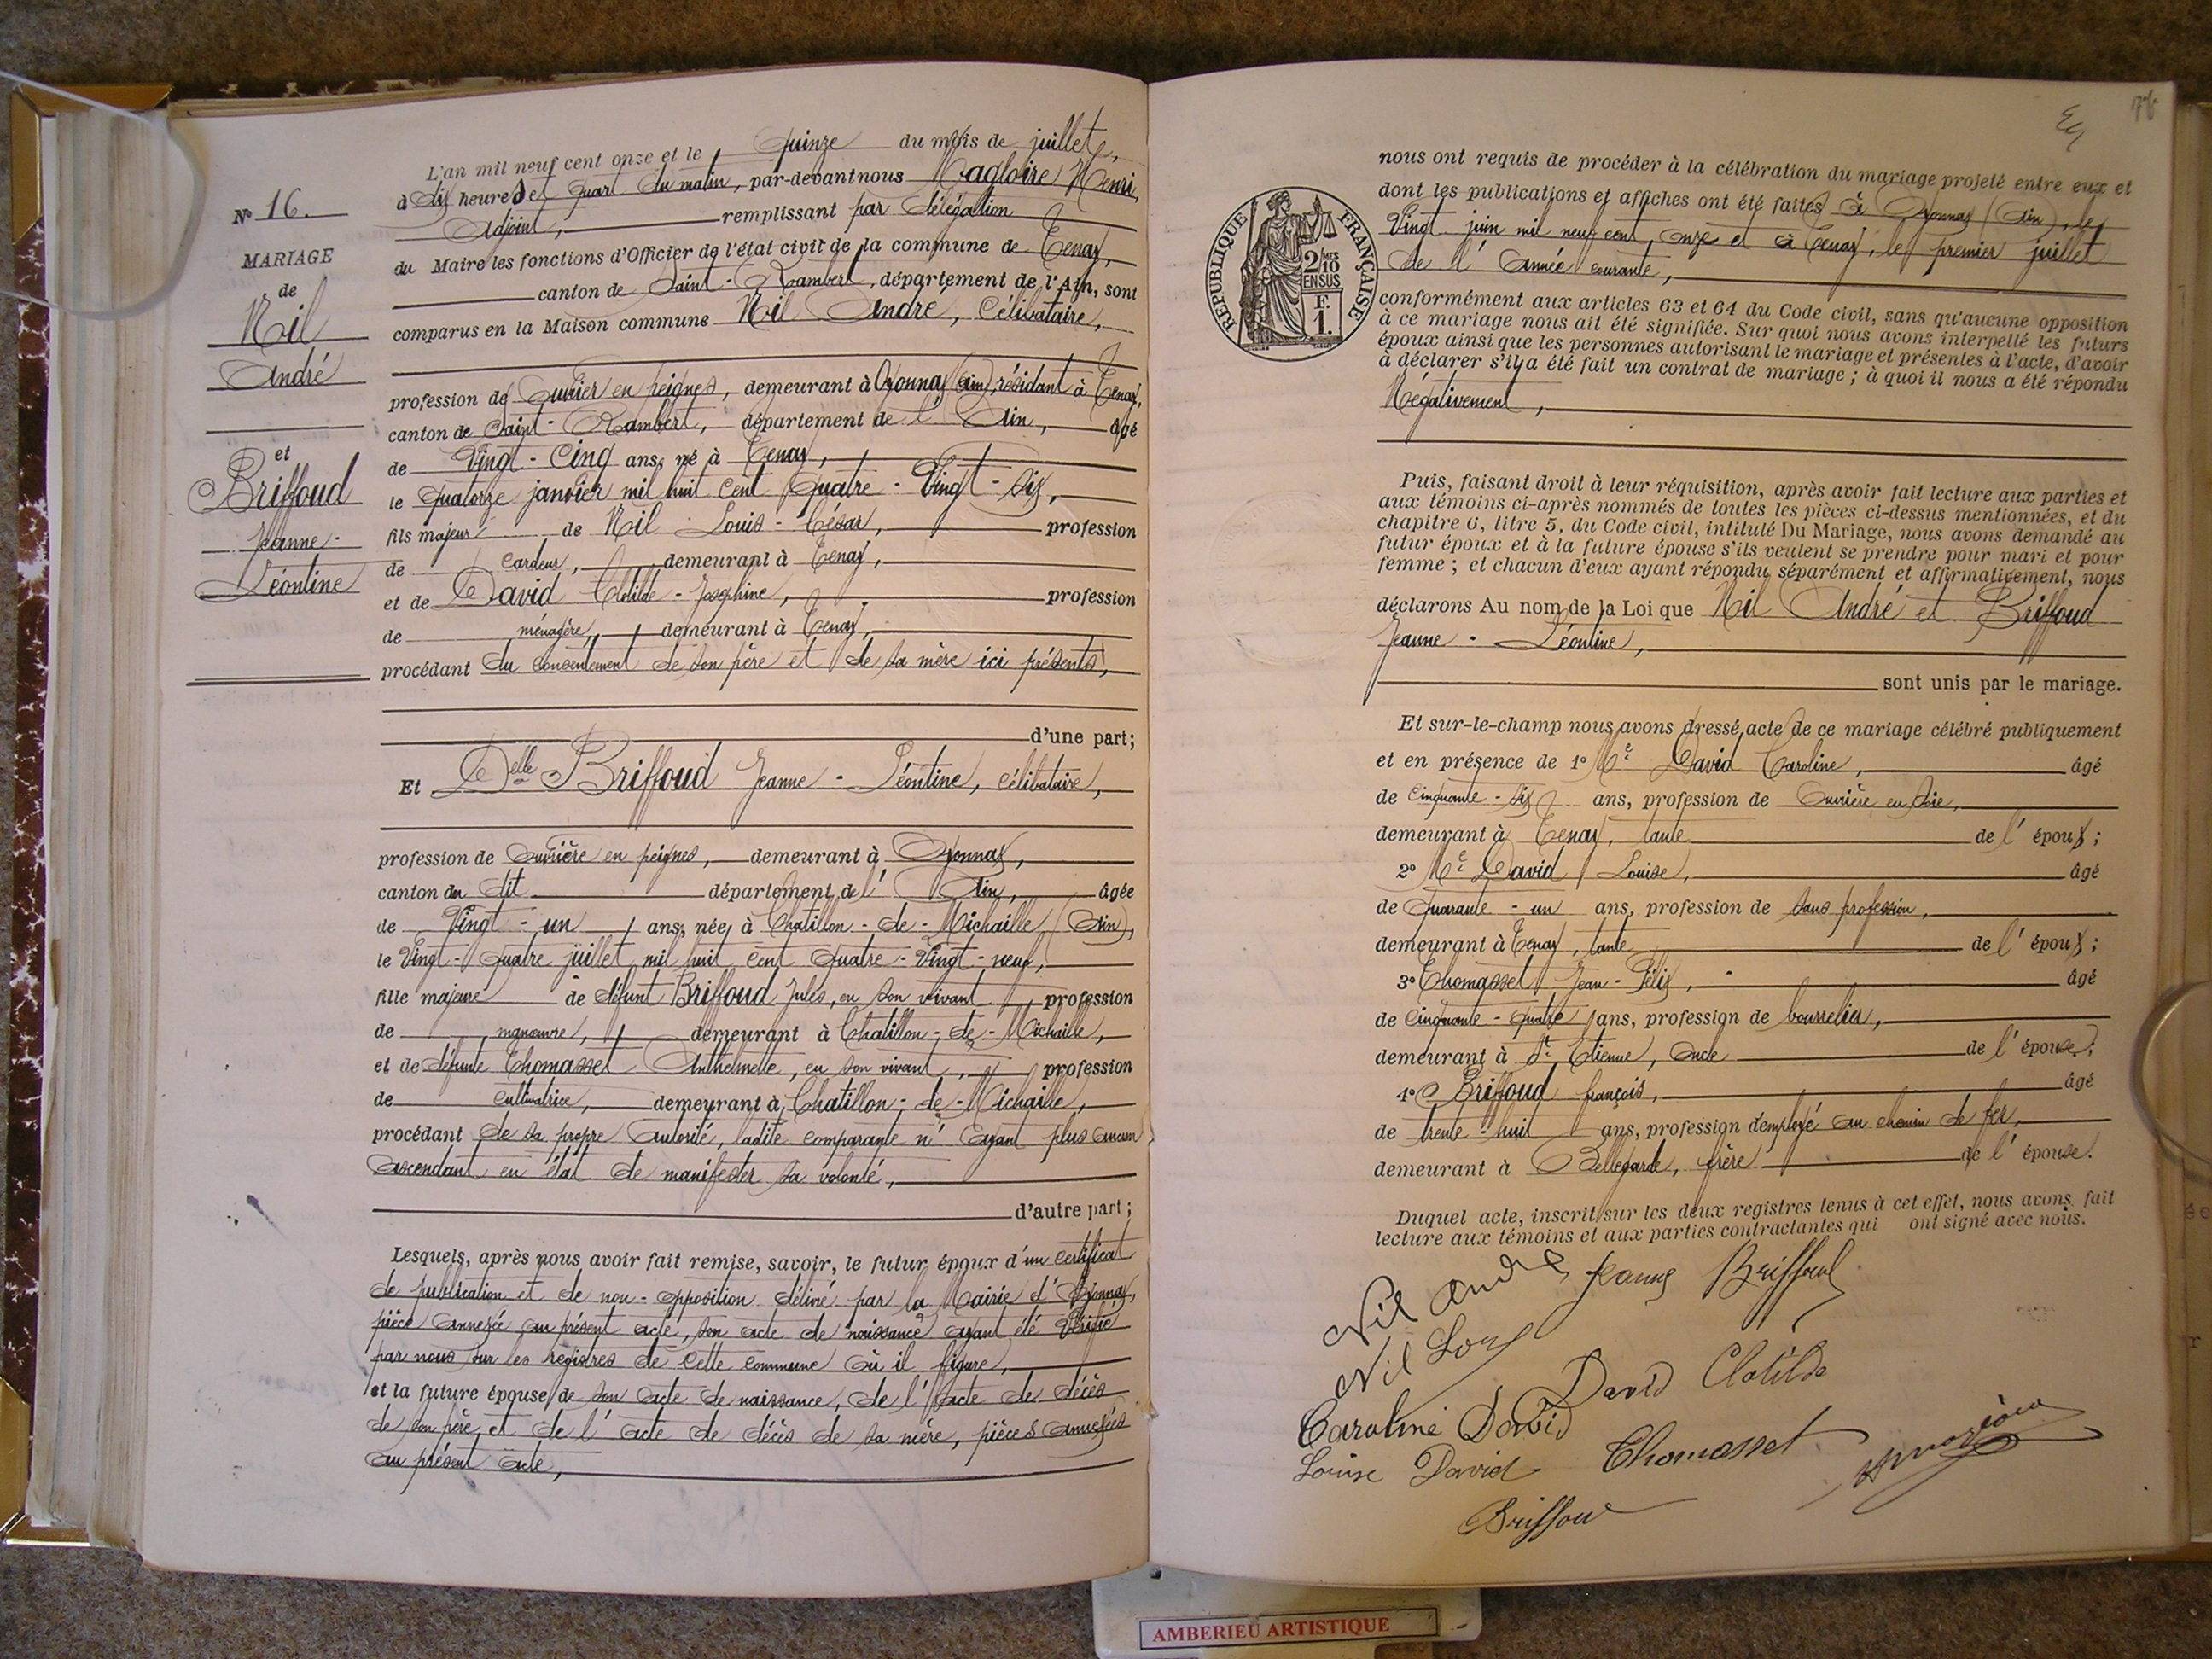 N° 16.
MARIAGE
de
Nil
André
et
Briffoud
Jeanne-
Léontine
L'an mil neuf cent onze et le quinze du mois de juillet,
à dix heures et quart du matin, par-devant nous Magloire Henri,
Adjoint, remplissant par délégation
du Maire les fonctions d'Officier de l'état civil de la commune de Tenay,
canton de Saint-Rambert, département de l'Ain, sont
comparus en la Maison commune Nil André, Célibataire,
profession de Ouvrier en peignes, demeurant à Oyonnax (Ain), résidant à Tenay,
canton de Saint-Rambert, département de l'Ain, âgé
de Vingt-Cinq ans, né à Tenay,
le Quatorze janvier mil huit cent Quatre-Vingt-Six,
fils majeur de Nil Louis-César, profession
de Cardeur, demeurant à Tenay,
et de David Clotilde-Joséphine, profession
de ménagère, demeurant à Tenay,
procédant du consentement de son père et de sa mère ici présents,
d'une part;
Et Delle Briffoud Jeanne-Léontine, célibataire,
profession de Ouvrière en peignes, demeurant à Oyonnax,
canton du dit département de l'Ain, âgée
de Vingt-un ans, née à Chatillon-de-Michaille (Ain),
le Vingt-Quatre juillet mil huit cent Quatre-Vingt-neuf,
fille majeure de défunt Briffoud Jules, en son vivant, profession
de manœuvre, demeurant à Chatillon-de-Michaille,
et de défunte Thomasset Anthelmette, en son vivant, profession
de cultivatrice, demeurant à Chatillon-de-Michaille,
procédant de sa propre Autorité, ladite comparante n'Ayant plus aucun
ascendant en état de manifester sa volonté,
d'autre part;
Lesquels, après nous avoir fait remise, savoir, le futur époux d'un certificat
de publication et de non-opposition délivré par la Mairie d'Oyonnax,
pièce annexée au présent acte, son acte de naissance ayant été Vérifié
par nous sur les registres de cette commune où il figure,
et la future épouse de son acte de naissance, de l'acte de décès
de son père et de l'acte de décès de sa mère, pièces annexées
au présent acte,
RÉPUBLIQUE FRANÇAISE
2/10 MES
EN SUS
F.
1.
nous ont requis de procéder à la célébration du mariage projeté entre eux et
dont les publications et affiches ont été faites à Oyonnax (Ain), le
Vingt juin mil neuf cent onze et à Tenay, le premier juillet
de l'Année courante,
conformément aux articles 63 et 64 du Code civil, sans qu'aucune opposition
à ce mariage nous ait été signifiée. Sur quoi nous avons interpellé les futurs
époux ainsi que les personnes autorisant le mariage et présentes à l'acte, d'avoir
à déclarer s'il y a été fait un contrat de mariage; à quoi il nous a été répondu
Négativement,
Puis, faisant droit à leur réquisition, après avoir fait lecture aux parties et
aux témoins ci-après nommés de toutes les pièces ci-dessus mentionnées, et du
chapitre 6, titre 5, du Code civil, intitulé Du Mariage, nous avons demandé au
futur époux et à la future épouse s'ils veulent se prendre pour mari et pour
femme; et chacun d'eux ayant répondu séparément et affirmativement, nous
déclarons Au nom de la Loi que Nil André et Briffoud
Jeanne-Léontine,
sont unis par le mariage.
Et sur-le-champ nous avons dressé acte de ce mariage célébré publiquement
et en présence de 1° Me David Caroline, âgé
de Cinquante-six ans, profession de Ouvrière en soie,
demeurant à Tenay, tante de l'époux;
2° Me David Louise, âgé
de Quarante-un ans, profession de sans profession,
demeurant à Tenay, tante de l'époux;
3° Thomasset Jean-Félix, âgé
de Cinquante-quatre ans, profession de bourrelier,
demeurant à St Etienne, oncle de l'épouse;
4° Briffoud François, âgé
de trente-huit ans, profession d'employé au chemin de fer,
demeurant à Bellegarde, frère de l'épouse.
Duquel acte, inscrit sur les deux registres tenus à cet effet, nous avons fait
lecture aux témoins et aux parties contractantes qui ont signé avec nous.
Nil André Jeanne Briffoud
Nil Louis
David Clotilde
Caroline David
Louise David Thomasset
AMBERIEU ARTISTIQUE